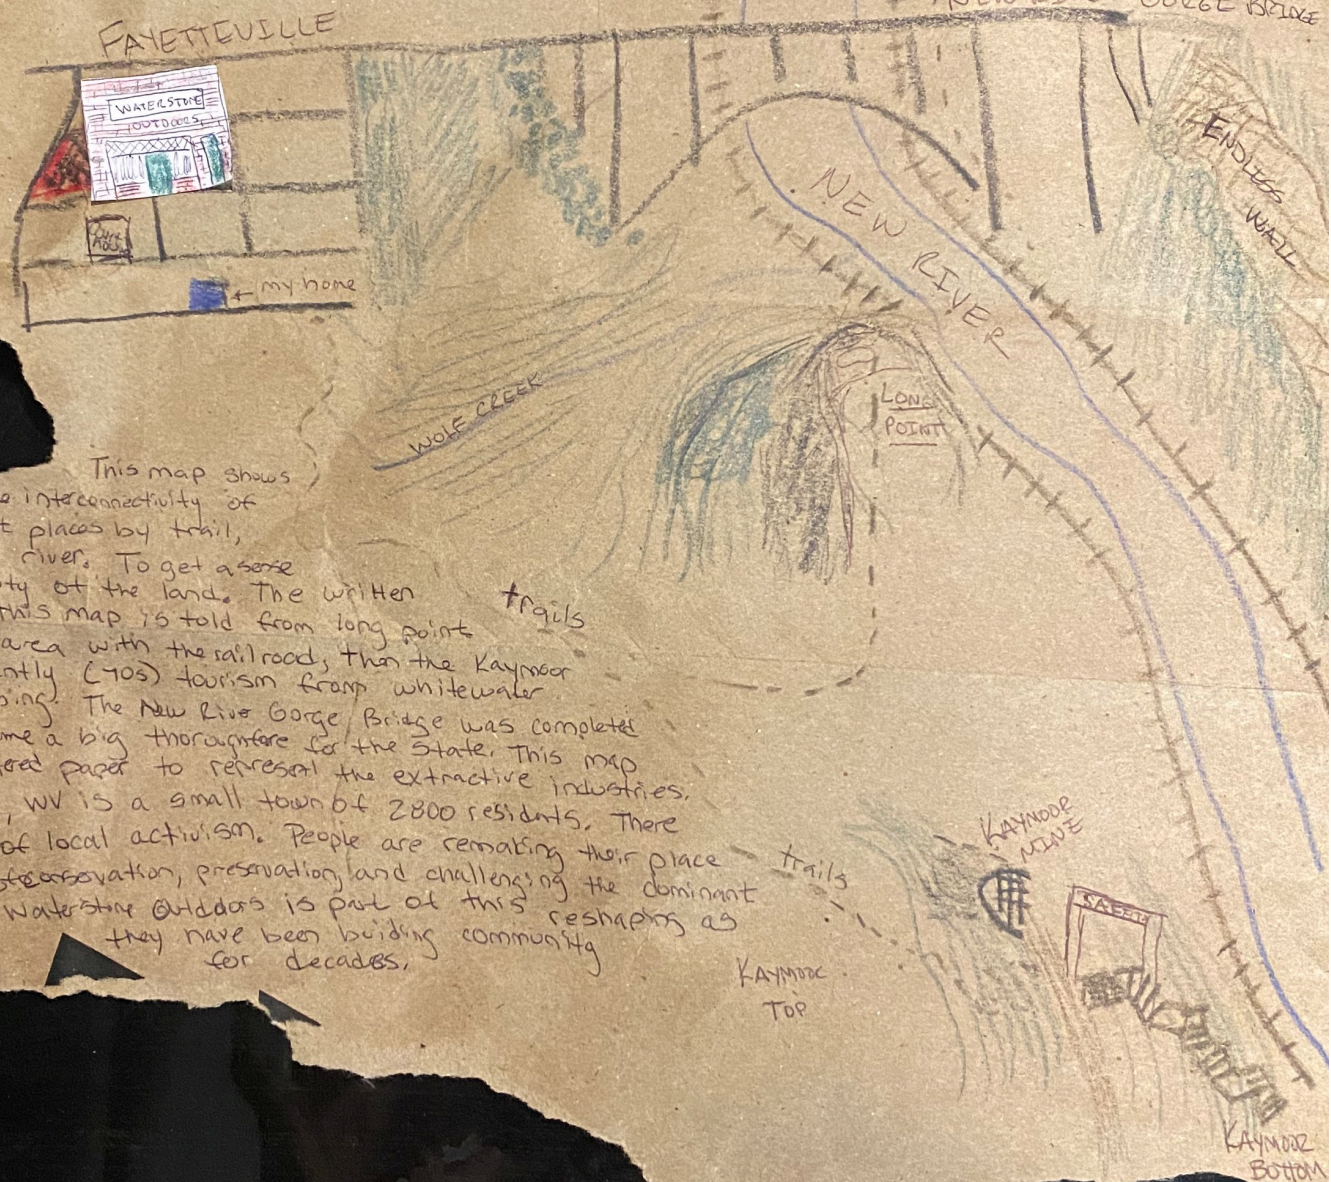 FAYETTEVILLE
GORGE BRIDGE
WATERSTONE
OUTDOORS
ENDLESS
WALL
NEW RIVER
← my home
WOLF CREEK
LONG
POINT
This map shows
interconnectivity of
places by trail,
river. To get a sense
of the land. The written
this map is told from long point
area with the railroad, then the Kaymoor
(70s) tourism from whitewater
The New River Gorge Bridge was completed
a big thoroughfare for the state. This map
paper to represent the extractive industries.
, WV is a small town of 2800 residents. There
of local activism. People are remaking their place
preservation, and challenging the dominant
Waterstone Outdoors is part of this reshaping as
they have been buiding community
for decades.
trails
trails
KAYMOOR
MINE
SAFETY
KAYMOOR
TOP
KAYMOOR
BOTTOM